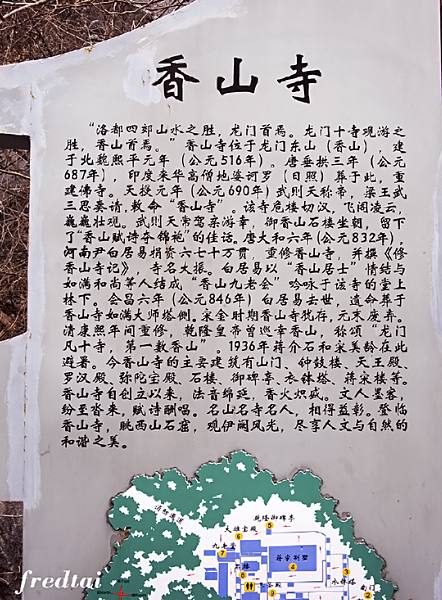 香山寺
“洛都四郊山水之胜，龙门首焉。龙门十寺观游之
胜，香山首焉。”香山寺位于龙门东山（香山），建
于北魏熙平元年（公元516年）。唐垂拱三年（公元
687年），印度来华高僧地婆诃罗（日照）葬于此，重
建佛寺。天授元年（公元690年）武则天称帝，梁王武
三思奏请，敕命“香山寺”。该寺危楼切汉，飞阁凌云，
巍巍壮观。武则天常驾亲游幸，御香山石楼坐朝，留下
了“香山赋诗夺锦袍”的佳话。唐大和六年（公元832年），
河南尹白居易捐资六七十万贯，重修香山寺，并撰《修
香山寺记》，寺名大振。白居易以“香山居士”情结与
如满和尚等人结成“香山九老会”吟咏于该寺的堂上
林下。会昌六年（公元846年）白居易去世，遗命葬于
香山寺如满大师塔侧。宋金时期香山寺犹存，元末废弃。
清康熙年间重修，乾隆皇帝曾巡幸香山，称颂“龙门
凡十寺，第一数香山”。1936年蒋介石和宋美龄在此
避暑。今香山寺的主要建筑有山门、钟鼓楼、天王殿、
罗汉殿、弥陀宝殿、石楼、御碑亭、衣钵塔、蒋宋楼等。
香山寺自创立以来，法音绵延，香火炽盛。文人墨客，
纷至沓来，赋诗酬唱。名山名寺名人，相得益彰。登临
香山寺，眺西山石窟，观伊阙风光，尽享人文与自然的
和谐之美。
乾隆御碑亭
5
大雄宝殿
6
九老堂
7
蒋宋别墅
4
衣钵塔
3
8
9
2
fredtai